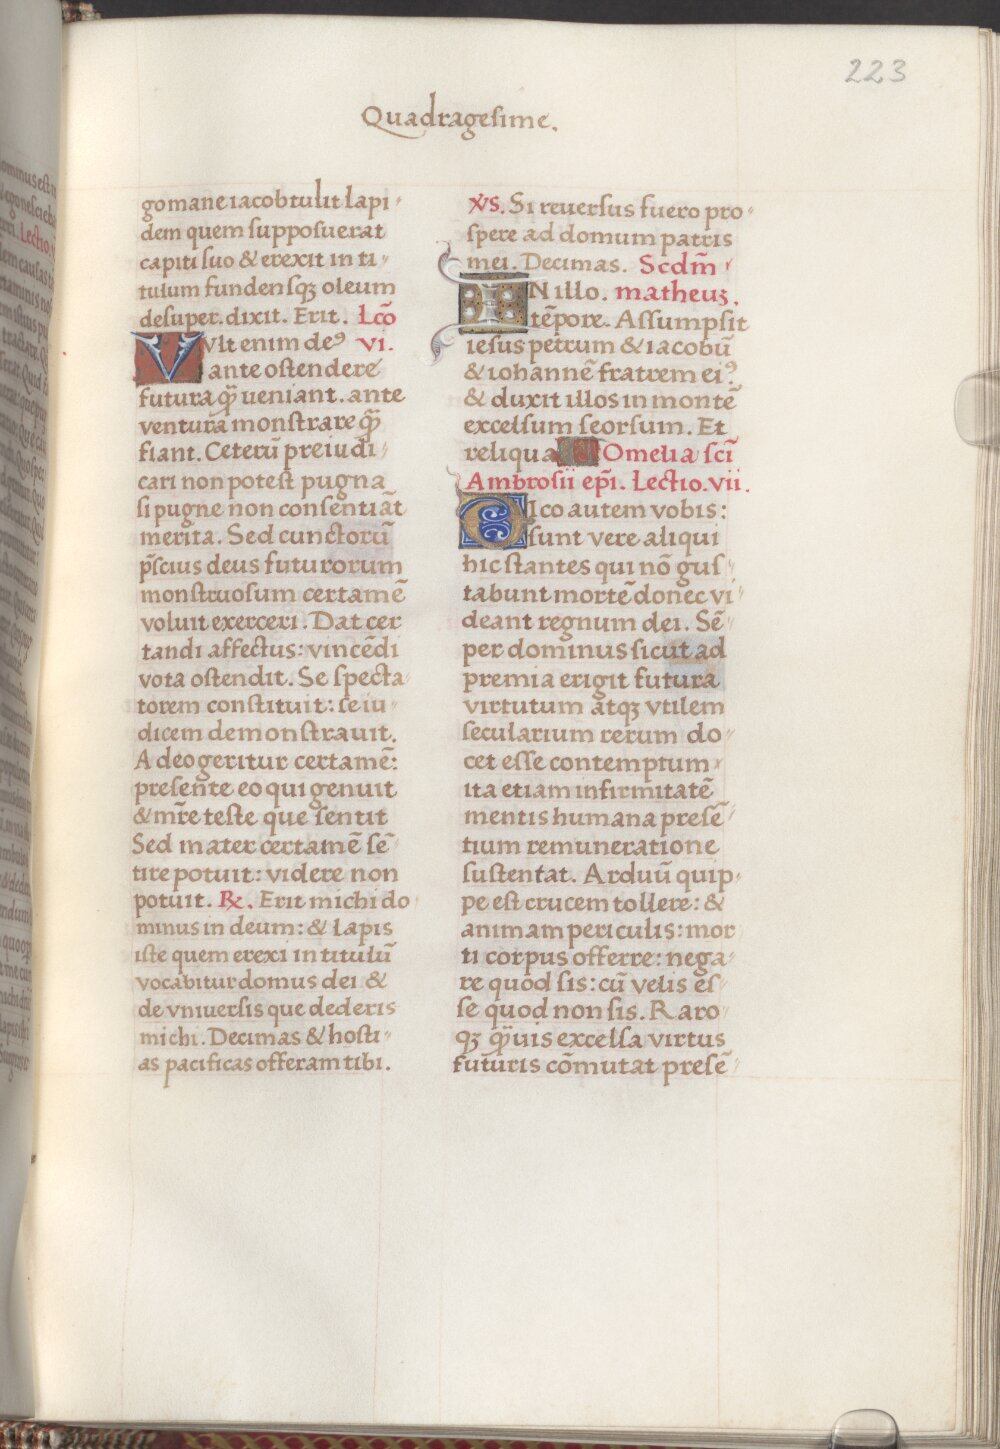 223
Quadragesime.
go mane iacob tulit lapi
dem quem supposuerat
capiti suo & erexit in ti
tulum fundensqꝫ oleum
desuper. dixit. Erit. Lcõ
Vlt enim deꝰ vi.
ante ostendere
futura q̃ꝫ ueniant. ante
ventura monstrare q̃ꝫ
fiant. Ceterũ preiudi
cari non potest pugna
si pugne non consentiãt
merita. Sed cunctorũ
p̃scius deus futurorum
monstruosum certamẽ
voluit exerceri. Dat cer
tandi affectus: vincẽdi
vota ostendit. Se specta
torem constituit: se iu
dicem demonstrauit.
Adeo geritur certamẽ:
presente eo qui genuit
& mr̃e teste que sentit
Sed mater certamẽ sẽ
tire potuit: videre non
potuit. ℞. Erit michi do
minus in deum: & lapis
iste quem erexi in titulũ
vocabitur domus dei &
de vniuersis que dederis
michi. Decimas & hosti
as pacificas offeram tibi.
℣S. Si reuersus fuero pro
spere ad domum patris
mei. Decimas. Scdm̃
IN illo. matheuꝫ.
tẽpore. Assumpsit
iesus petrum & iacobũ
& iohannẽ fratrem eiꝰ
& duxit illos in montẽ
excelsum seorsum. Et
reliqua Omelia sci̅
Ambrosii ep̃i. Lectio. vii.
DIco autem vobis:
sunt vere aliqui
hic stantes qui nõ gus
tabunt mortẽ donec vi
deant regnum dei. Sẽ
per dominus sicut ad
premia erigit futura
virtutum atqꝫ vtilem
secularium rerum do
cet esse contemptum
ita etiam infirmitatẽ
mentis humana presẽ
tium remuneratione
sustentat. Arduũ quip
pe est crucem tollere: &
animam periculis: mor
ti corpus offerre: nega
re quod sis: cũ velis es
se quod non sis. Raro
qꝫ q̃uis excelsa virtus
futuris cõmutat presẽ